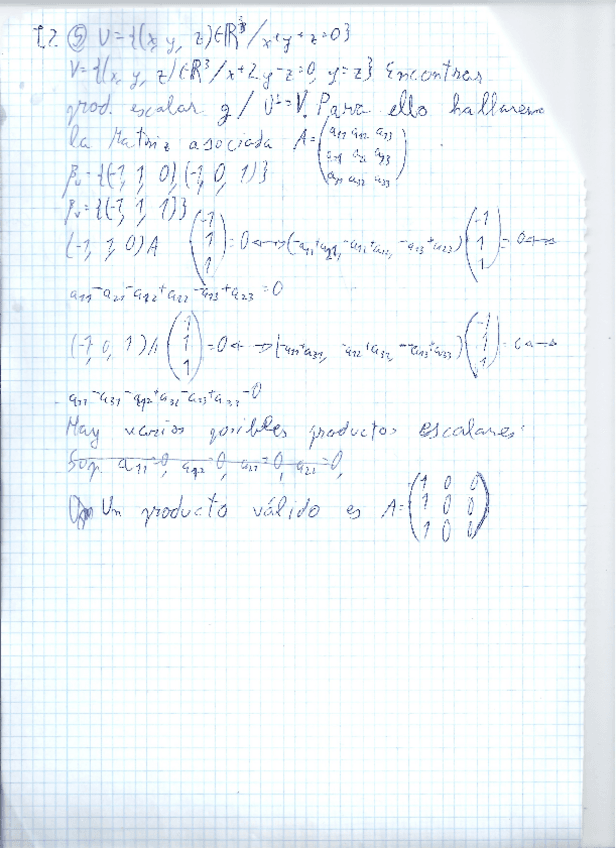 5 U={(x, y, z)∈R³/x+y+z=0}
V={(x, y, z)∈R³/x+2y-z=0, y=z} Encontrar
prod. escalar g/ U⊥=V. Para ello hallaremos
la Matriz asociada A=(a11 a12 a13
a21 a22 a23
a31 a32 a33)
βu={(-1, 1, 0), (-1, 0, 1)}
βv={(-1, 1, 1)}
(-1, 1, 0)A (-1 1 1)=0↔(-a11+a21, -a12+a22, -a13+a23)(-1 1 1)=0↔
a11-a21-a12+a22-a13+a23=0
(-1, 0, 1)A(-1 1 1)=0↔(-a11+a31, -a12+a32, -a13+a33)(-1 1 1)=0↔
a11-a31-a12+a32-a13+a33=0
Hay varios posibles productos escalares:
Un producto válido es A=(1 0 0
1 0 0
1 0 0)